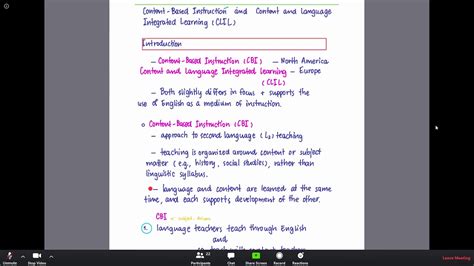 Content-Based Instruction and Content and Language
Integrated Learning (CLIL)
Introduction
- Content-Based Instruction (CBI) - North America
Content and Language Integrated Learning - Europe
(CLIL)
- Both slightly differs in focus + supports the
use of English as a medium of instruction.
Content-Based Instruction (CBI)
- approach to second language (L2) teaching
- teaching is organised around content or subject
matter (e.g., history, social studies), rather than
linguistic syllabus.
- language and content are learned at the same
time, and each supports development of the other.
CBI
language teachers teach through English
and
Unmute
Stop Video
22
Participants
Chat
Share Screen
Record
Reactions
Leave Meeting